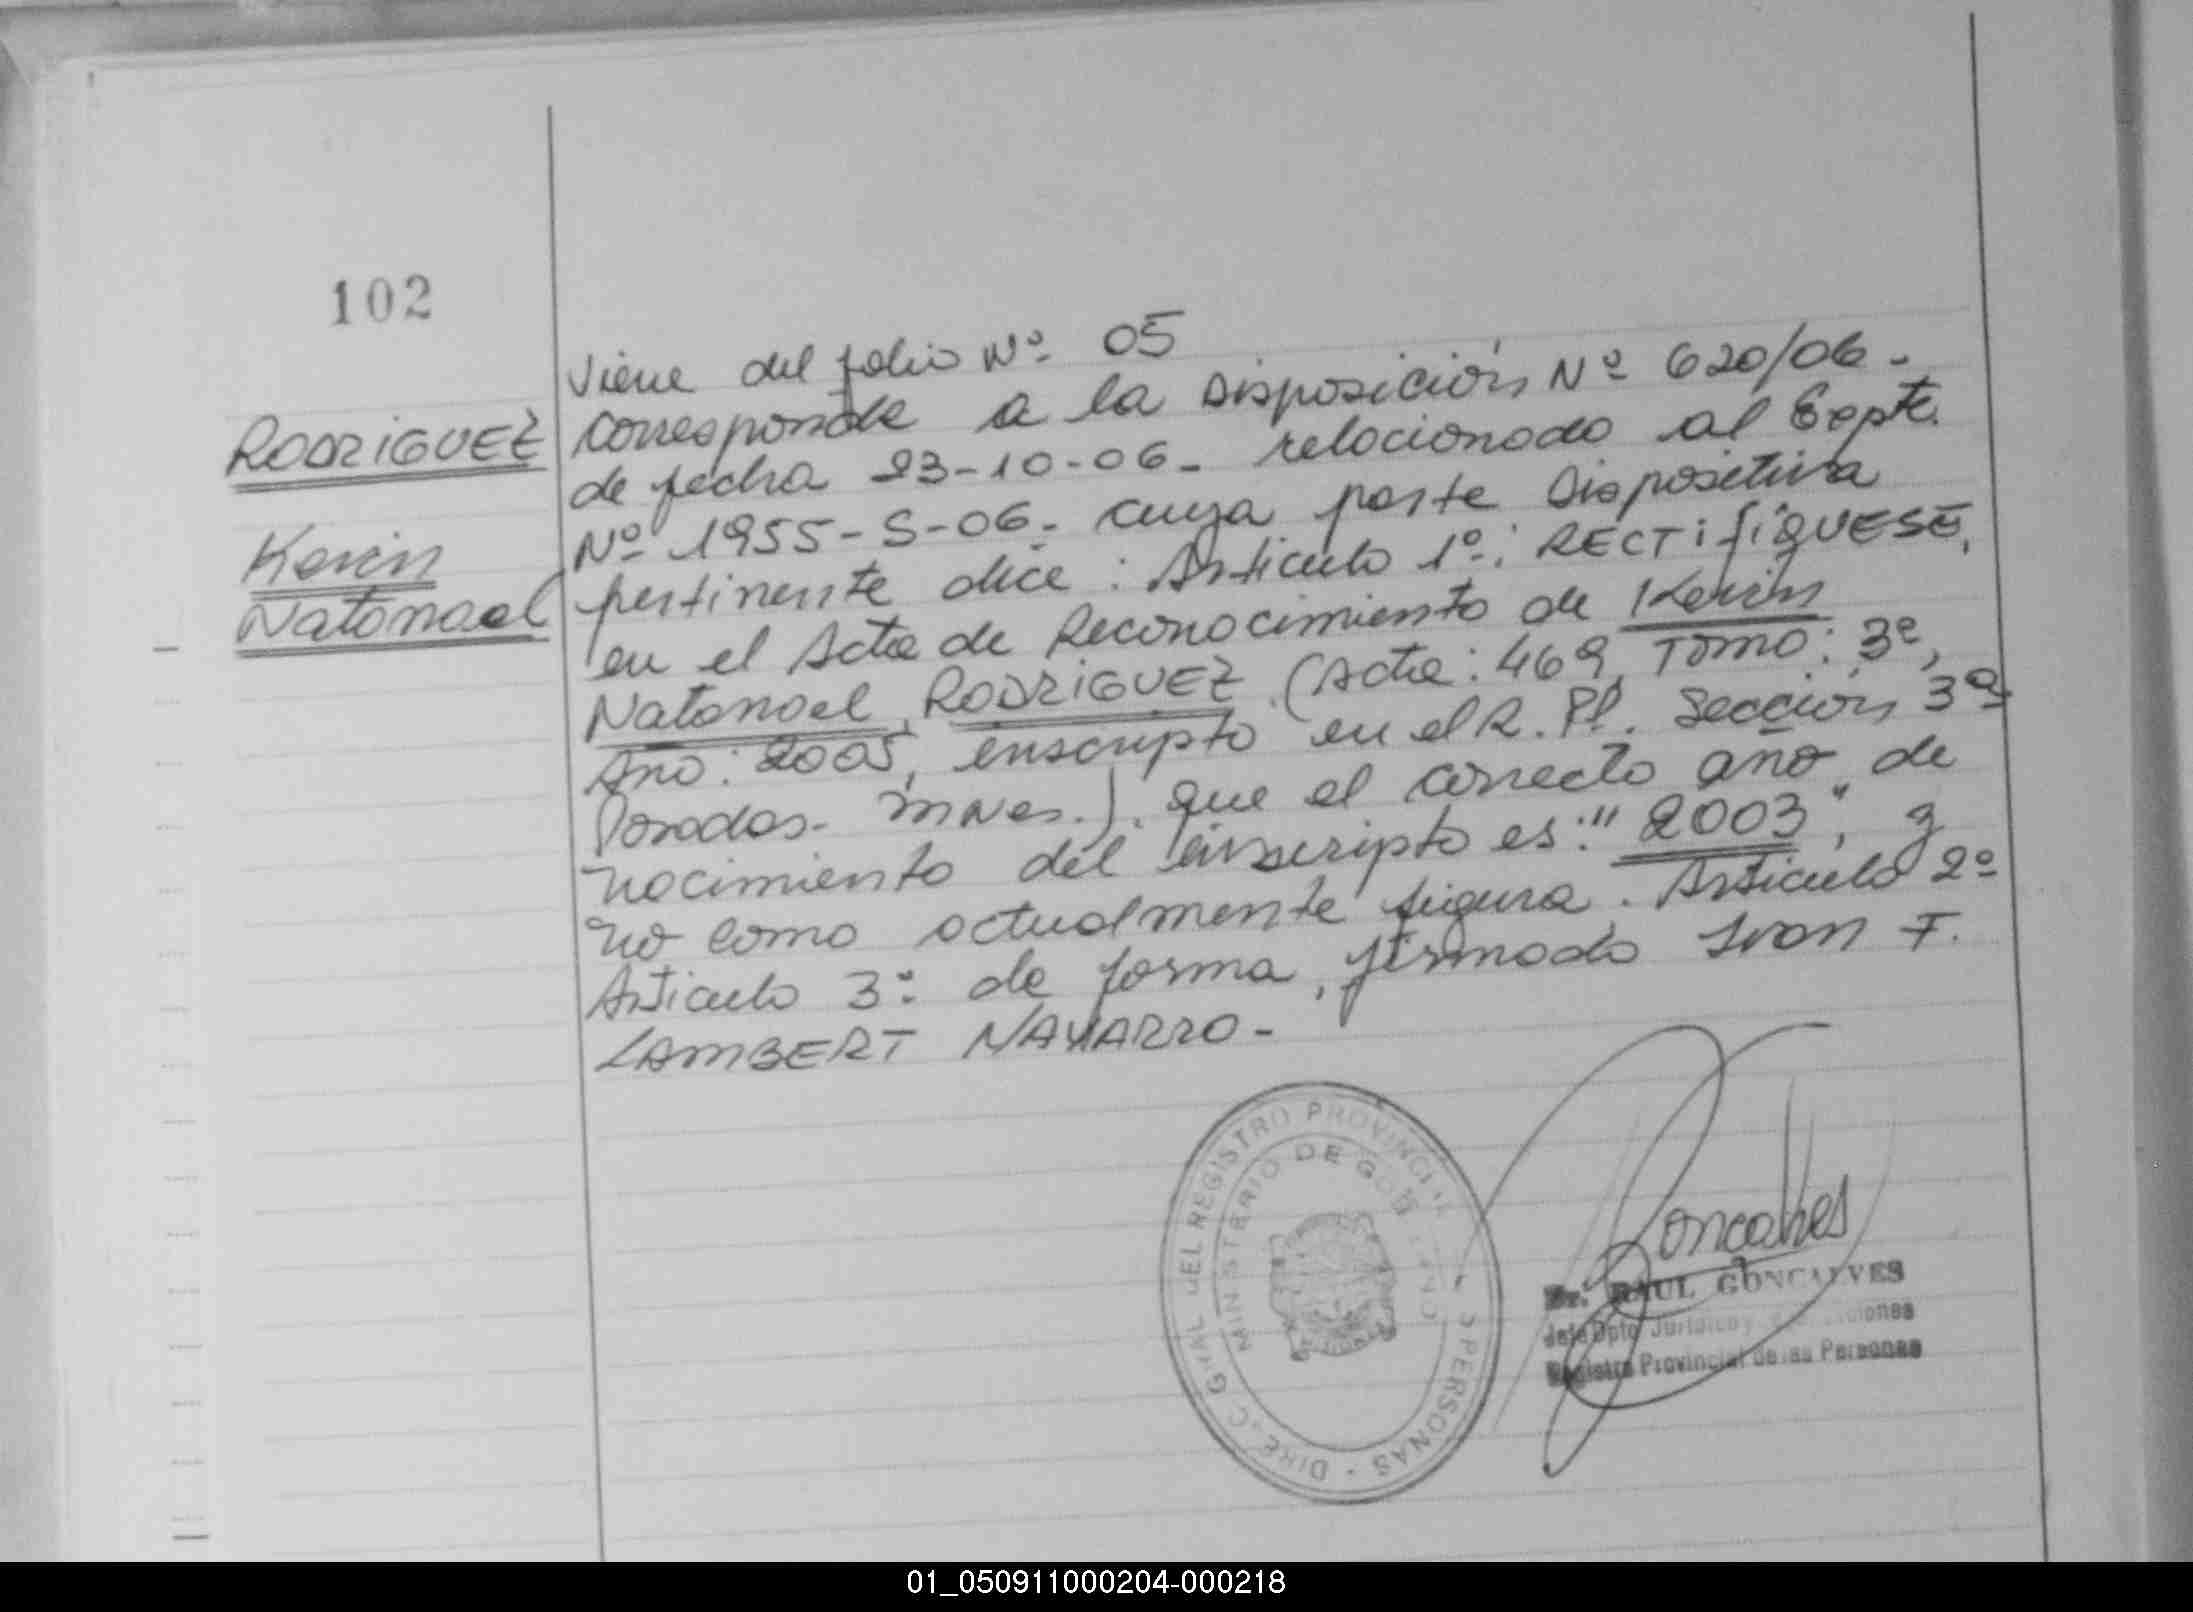 102
RODRIGUEZ
Kevin
Natanael
Viene del folio Nº 05
Corresponde a la Disposición Nº 620/06 -
de fecha 23-10-06- relacionado al Expte.
Nº 1955-S-06- cuya parte Dispositiva
pertinente dice: Articulo 1º: RECTIFIQUESE,
en el Acta de Reconocimiento de Kevin
Natanael RODRIGUEZ (Acta: 469, Tomo: 3º,
Año: 2005, inscripto en el R. Pl. Sección 3ª
Posadas- Mnes.). que el correcto año de
nacimiento del inscripto es: "2003", y
no como actualmente figura. Articulo 2º
Articulo 3º: de forma, firmado Ivan F.
LAMBERT NAVARRO-
DIREC. GRAL DEL REGISTRO PROVINCIAL PERSONAS
MINISTERIO DE GOBIERNO
Goncalves
Dr. RAUL GONCALVES
Jefe Dpto Juridico y
Registro Provincial de las Personas
01_050911000204-000218